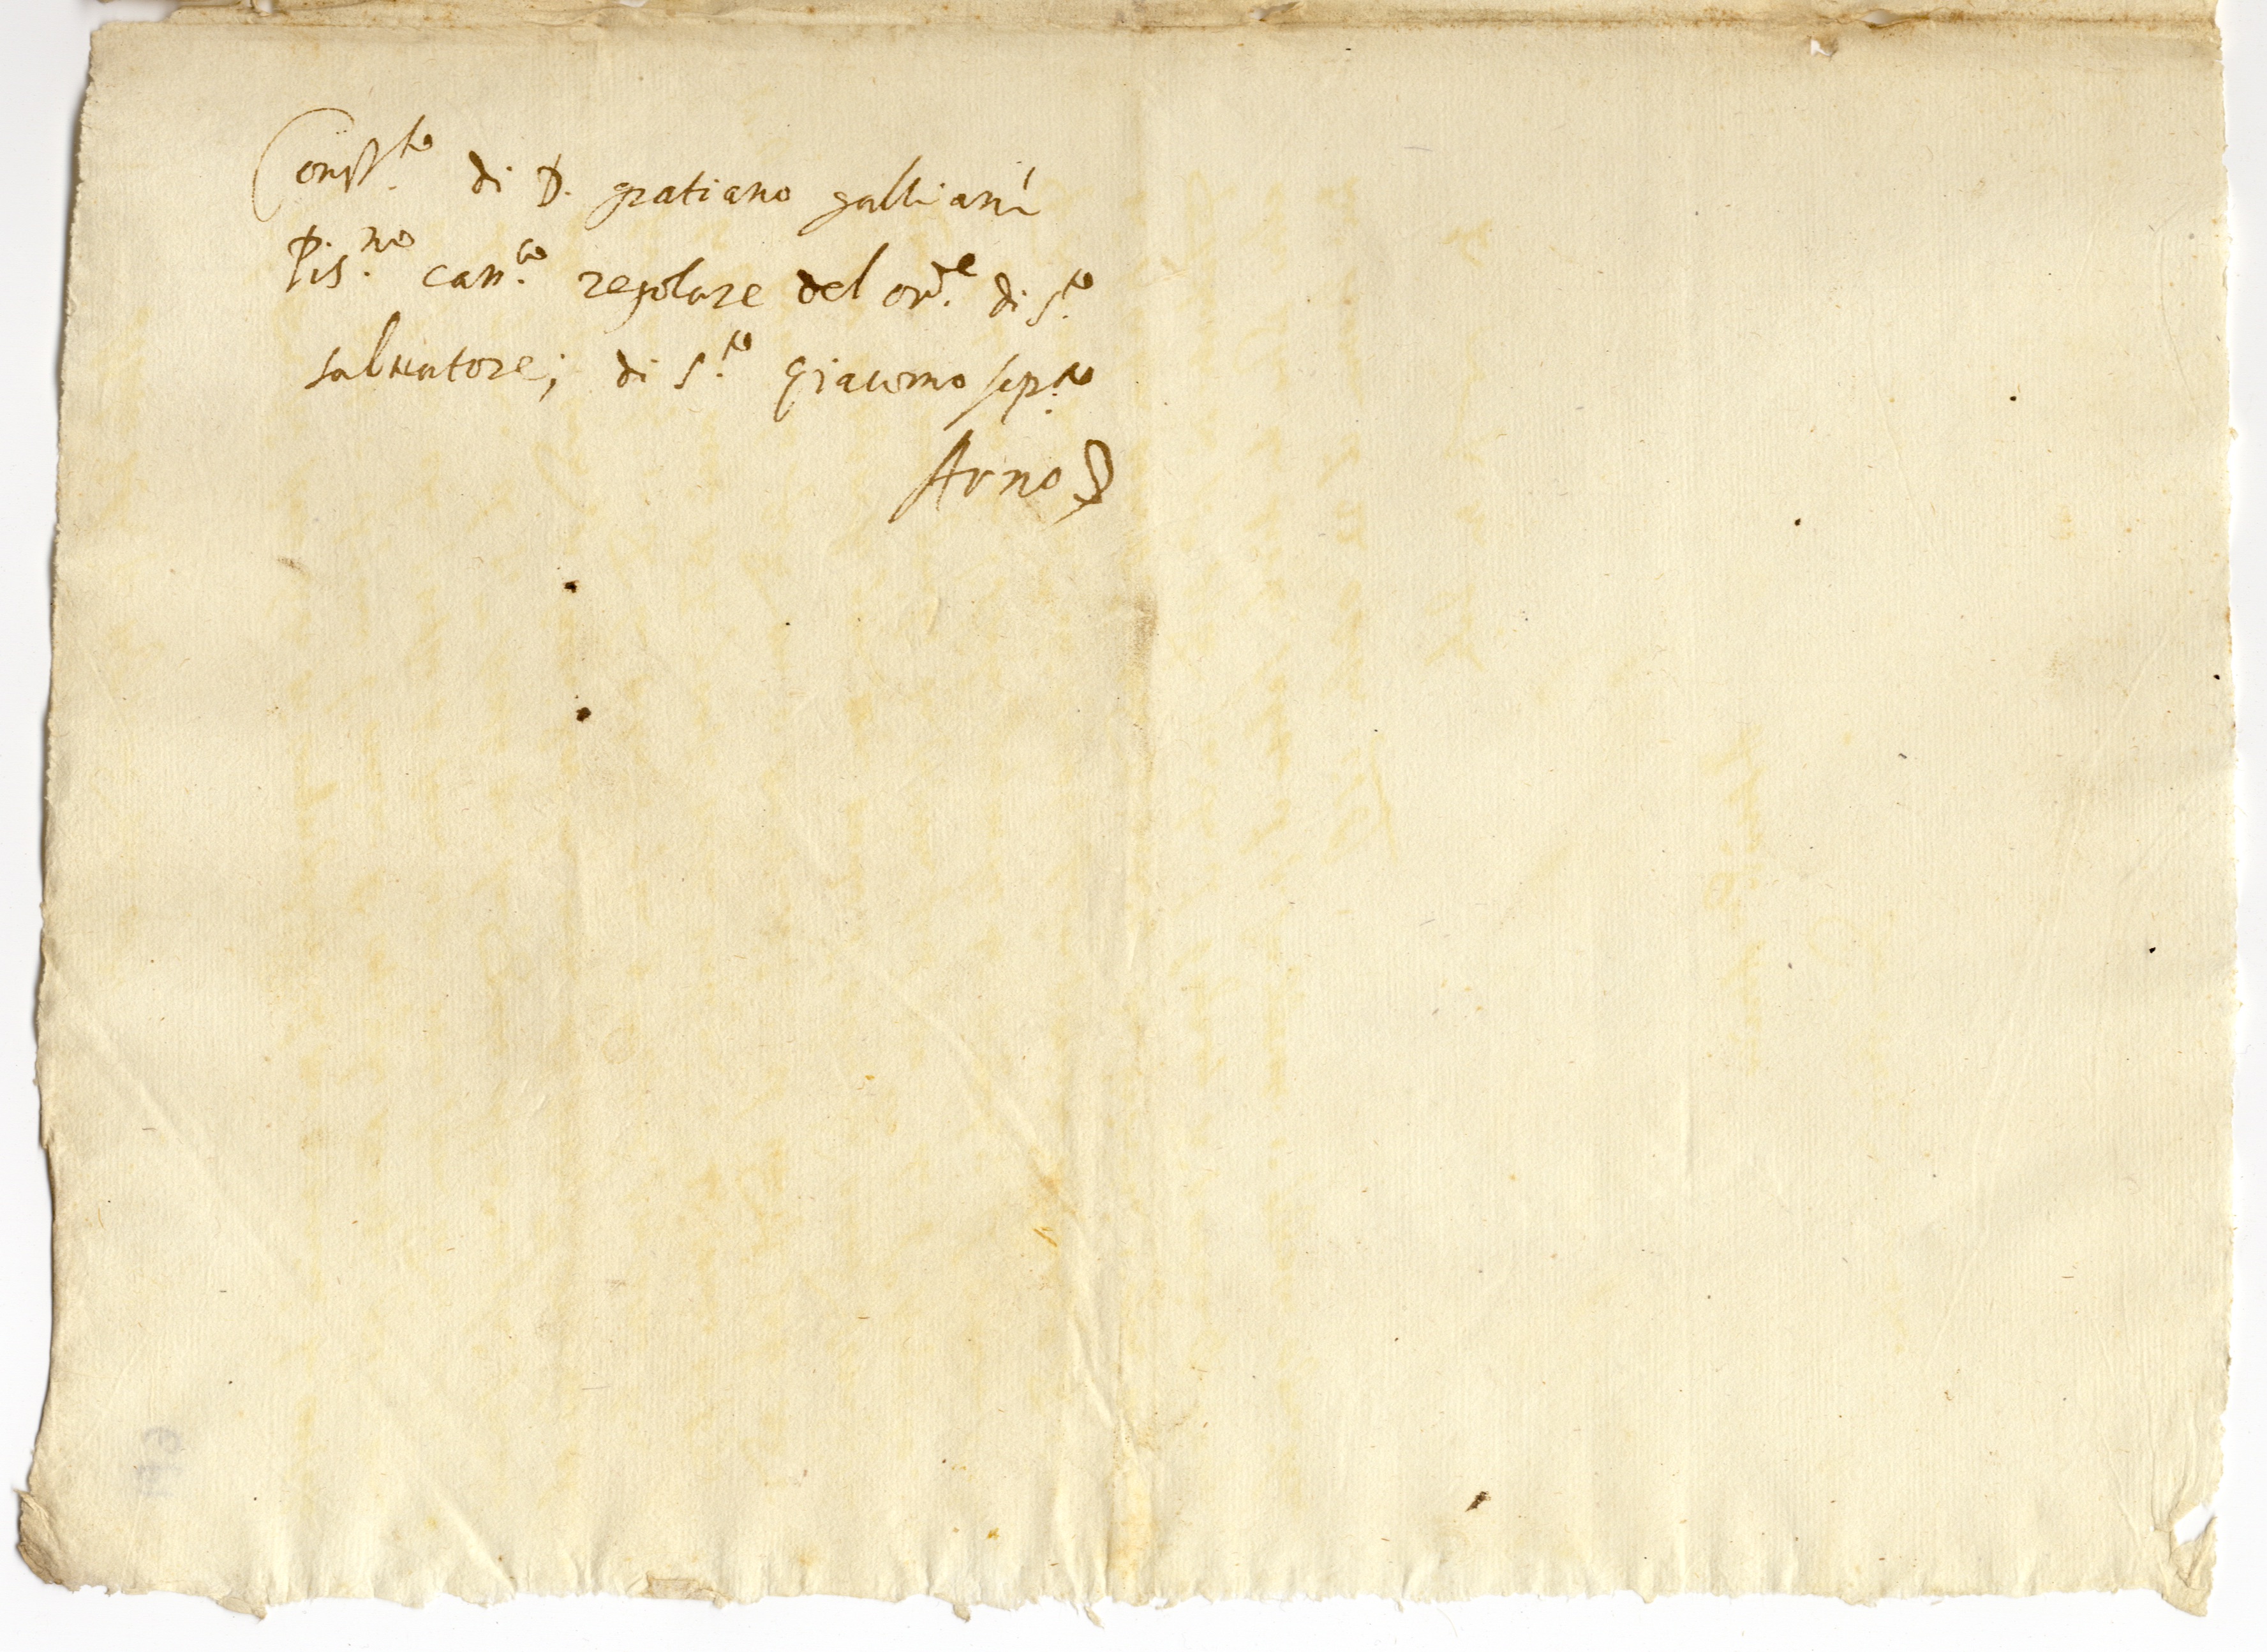 Const.to di D. gratiano galliani
Pis.no can.co regolare del ord.e di s.to
salvatore; di s.to Giacomo sop.a
Arno